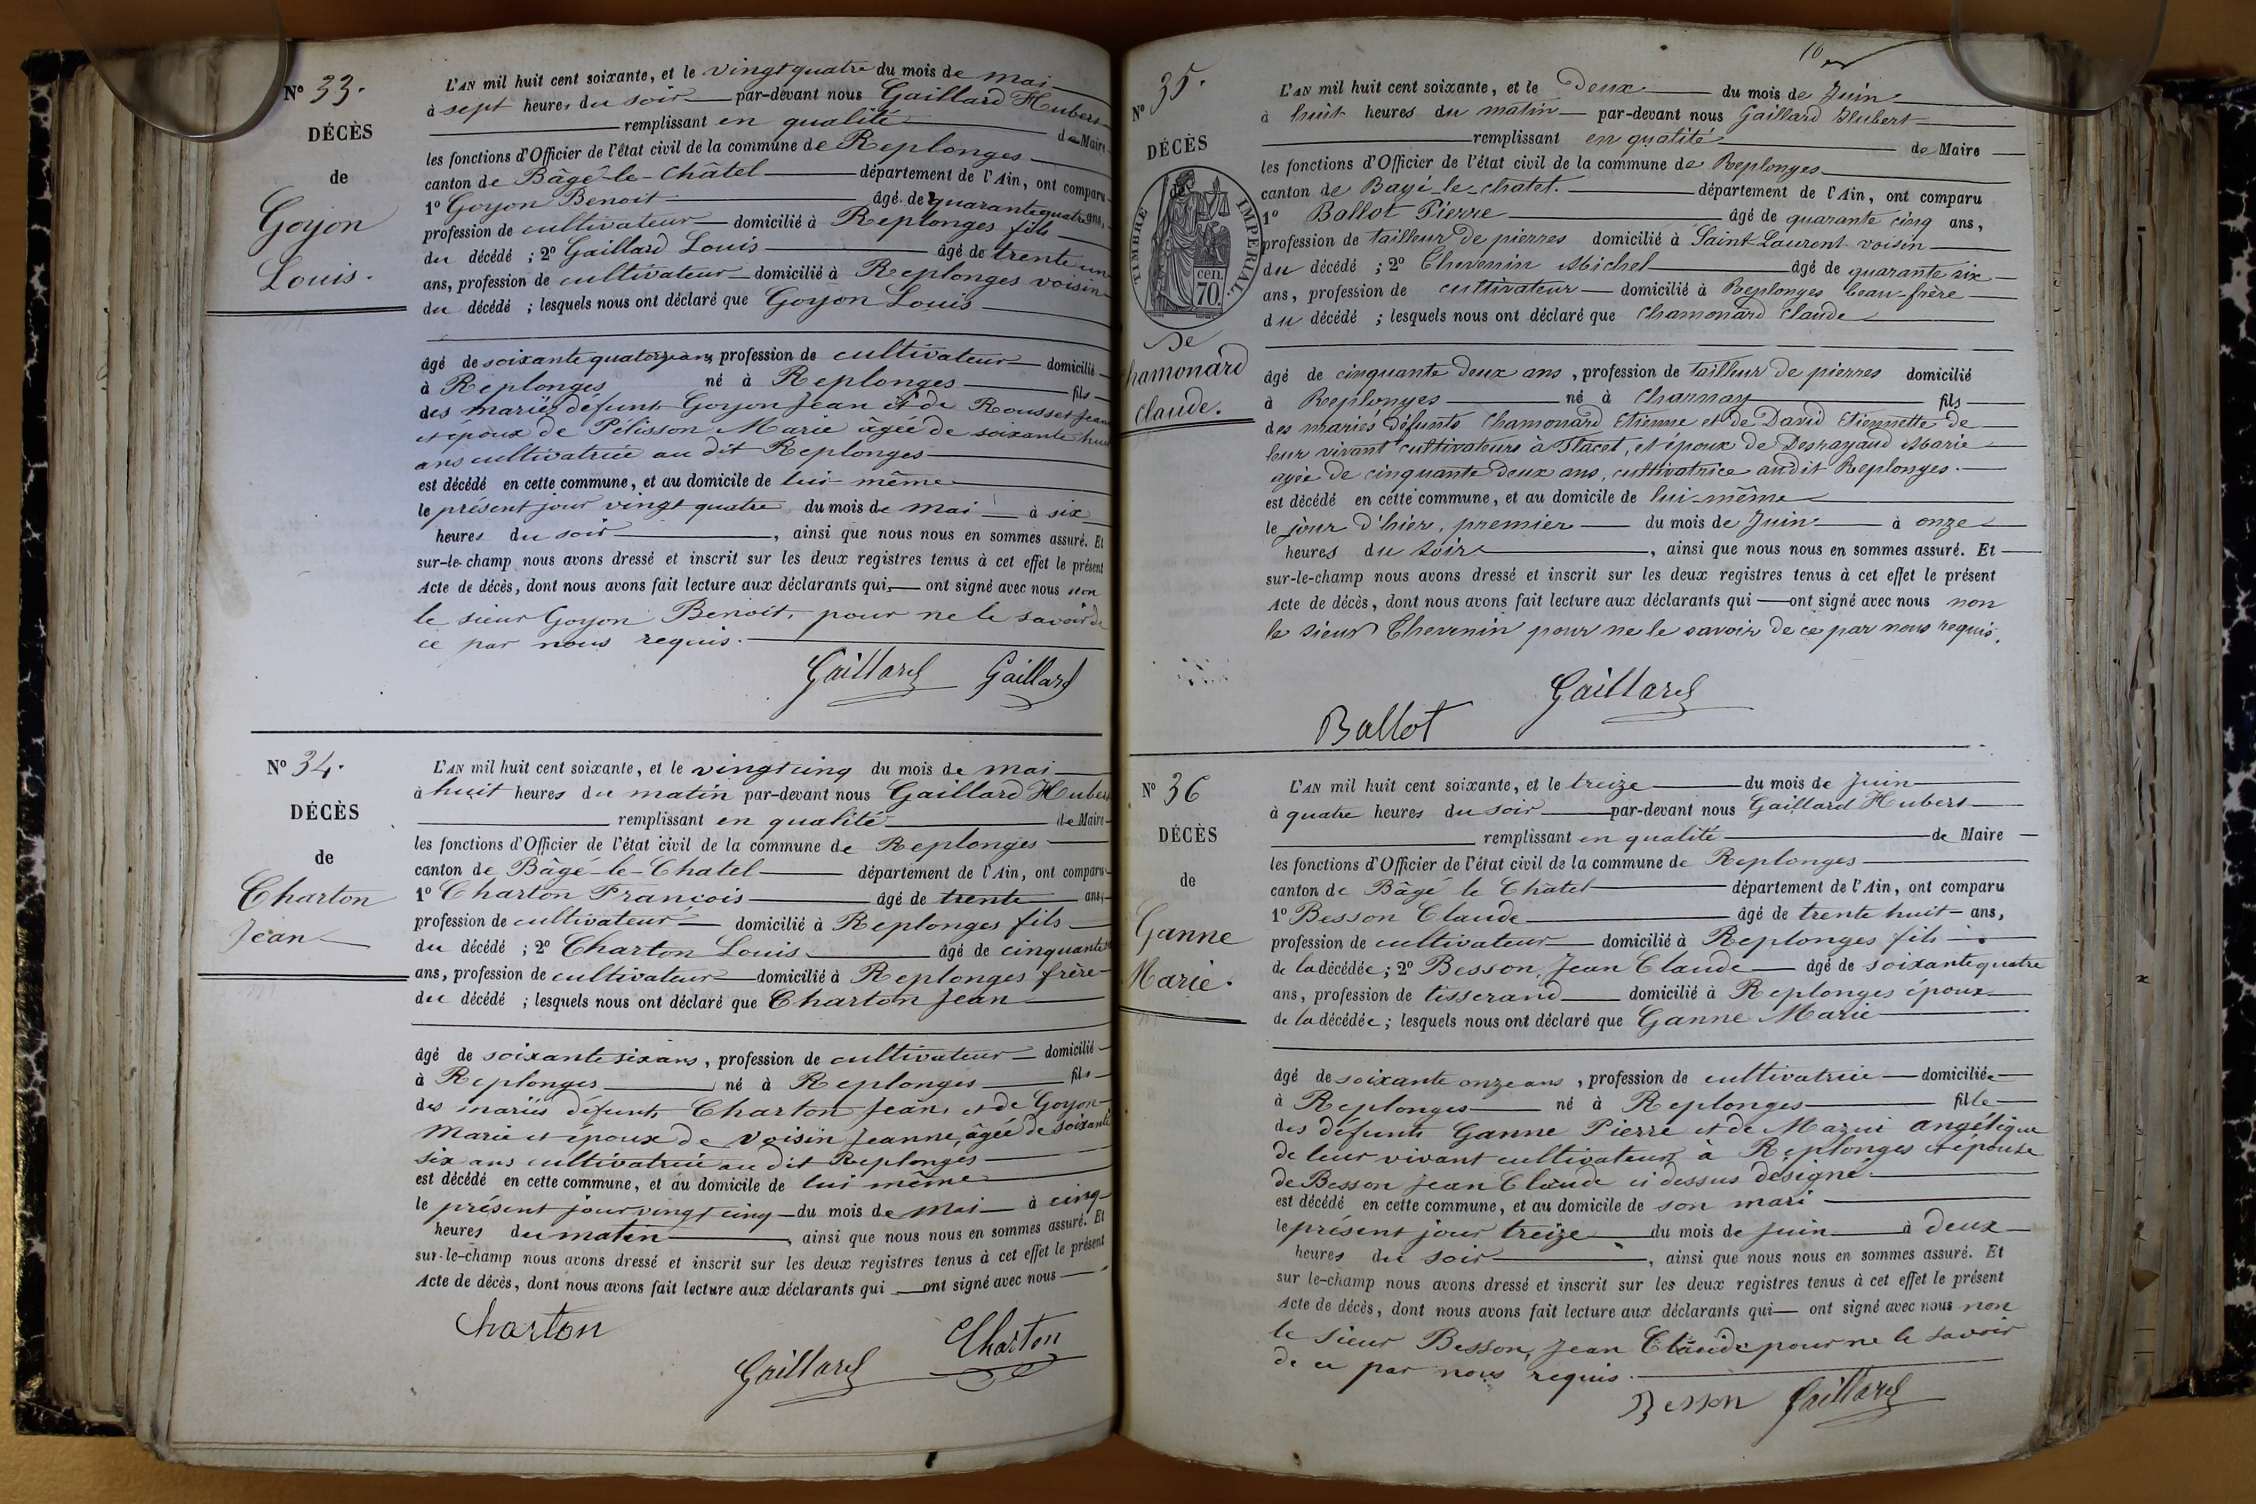 N° 33.
DÉCÈS
de
Goyon
Louis.
L'AN mil huit cent soixante, et le vingt quatre du mois de mai
à sept heures du soir par-devant nous Gaillard Hubert
remplissant en qualité de Maire
les fonctions d'Officier de l'état civil de la commune de Replonges
canton de Bâgé-le-Châtel département de l'Ain, ont comparu
1° Goyon Benoit âgé de quarante quatre ans,
profession de cultivateur domicilié à Replonges fils
du décédé ; 2° Gaillard Louis âgé de trente un
ans, profession de cultivateur domicilié à Replonges voisin
du décédé ; lesquels nous ont déclaré que Goyon Louis
âgé de soixante quatorze ans, profession de cultivateur domicilié
à Replonges né à Replonges fils
des mariés défunts Goyon Jean et de Rousset Jeanne
et époux de Pélisson Marie âgée de soixante huit
ans cultivatrice au dit Replonges
est décédé en cette commune, et au domicile de lui-même
le présent jour vingt quatre du mois de mai à six
heures du soir, ainsi que nous nous en sommes assuré. Et
sur-le-champ nous avons dressé et inscrit sur les deux registres tenus à cet effet le présent
Acte de décès, dont nous avons fait lecture aux déclarants qui ont signé avec nous non
le sieur Goyon Benoit, pour ne le savoir de
ce par nous requis.
Gaillard Gaillard
N° 34.
DÉCÈS
de
Charton
Jean
L'AN mil huit cent soixante, et le vingt cinq du mois de mai
à huit heures du matin par-devant nous Gaillard Hubert
remplissant en qualité de Maire
les fonctions d'Officier de l'état civil de la commune de Replonges
canton de Bâgé-le-Chatel département de l'Ain, ont comparu
1° Charton François âgé de trente ans,
profession de cultivateur domicilié à Replonges fils
du décédé ; 2° Charton Louis âgé de cinquante
ans, profession de cultivateur domicilié à Replonges frère
du décédé ; lesquels nous ont déclaré que Charton Jean
âgé de soixante six ans, profession de cultivateur domicilié
à Replonges né à Replonges fils
des mariés défunts Charton Jean, et de Goyon
Marie et époux de Voisin Jeanne, âgée de soixante
six ans cultivatrice au dit Replonges
est décédé en cette commune, et au domicile de lui même
le présent jour vingt cinq du mois de Mai à cinq
heures du matin, ainsi que nous nous en sommes assuré. Et
sur-le-champ nous avons dressé et inscrit sur les deux registres tenus à cet effet le présent
Acte de décès, dont nous avons fait lecture aux déclarants qui ont signé avec nous
Charton
Gaillard Charton
N° 35.
DÉCÈS
de
TIMBRE IMPERIAL.
70 cen.
De
hamonard
Claude.
L'AN mil huit cent soixante, et le Deux du mois de Juin
à huit heures du matin par-devant nous Gaillard Hubert
remplissant en qualité de Maire
les fonctions d'Officier de l'état civil de la commune de Replonges
canton de Bagé-le-chatel. département de l'Ain, ont comparu
1° Ballot Pierre âgé de quarante cinq ans,
profession de tailleur de pierres domicilié à Saint-Laurent voisin
du décédé ; 2° Thevenin Michel âgé de quarante six
ans, profession de cultivateur domicilié à Replonges beau-frère
du décédé ; lesquels nous ont déclaré que Chamonard Claude
âgé de cinquante deux ans, profession de tailleur de pierres domicilié
à Replonges né à Charnay fils
des mariés défunts Chamonard Etienne et de David Etiennette de
leur vivant cultivateurs à Flacet, et époux de Desrayaud Marie
agée de cinquante deux ans, cultivatrice audit Replonges.
est décédé en cette commune, et au domicile de lui-même
le jour d'hier, premier du mois de Juin à onze
heures du soir, ainsi que nous nous en sommes assuré. Et
sur-le-champ nous avons dressé et inscrit sur les deux registres tenus à cet effet le présent
Acte de décès, dont nous avons fait lecture aux déclarants qui ont signé avec nous non
le sieur Thevenin pour ne le savoir de ce par nous requis.
Gaillard
Ballot
N° 36
DÉCÈS
de
Ganne
Marie.
L'AN mil huit cent soixante, et le treize du mois de Juin
à quatre heures du soir par-devant nous Gaillard Hubert
remplissant en qualité de Maire
les fonctions d'Officier de l'état civil de la commune de Replonges
canton de Bâgé le Châtel département de l'Ain, ont comparu
1° Besson Claude âgé de trente huit ans,
profession de cultivateur domicilié à Replonges fils
de la décédée ; 2° Besson, Jean Claude âgé de soixante quatre
ans, profession de tisserand domicilié à Replonges époux
de la décédée ; lesquels nous ont déclaré que Ganne Marie
âgé de soixante onze ans, profession de cultivatrice domiciliée
à Replonges né à Replonges fille
des défunts Ganne Pierre et de Mazui angélique
de leur vivant cultivateurs à Replonges et épouse
de Besson Jean Claude ci dessus désigné.
est décédé en cette commune, et au domicile de son mari
le présent jour treize du mois de Juin à deux
heures du soir, ainsi que nous nous en sommes assuré. Et
sur le-champ nous avons dressé et inscrit sur les deux registres tenus à cet effet le présent
Acte de décès, dont nous avons fait lecture aux déclarants qui ont signé avec nous non
le sieur Besson, Jean Claude pour ne le savoir
de ce par nous requis.
Besson Gaillard